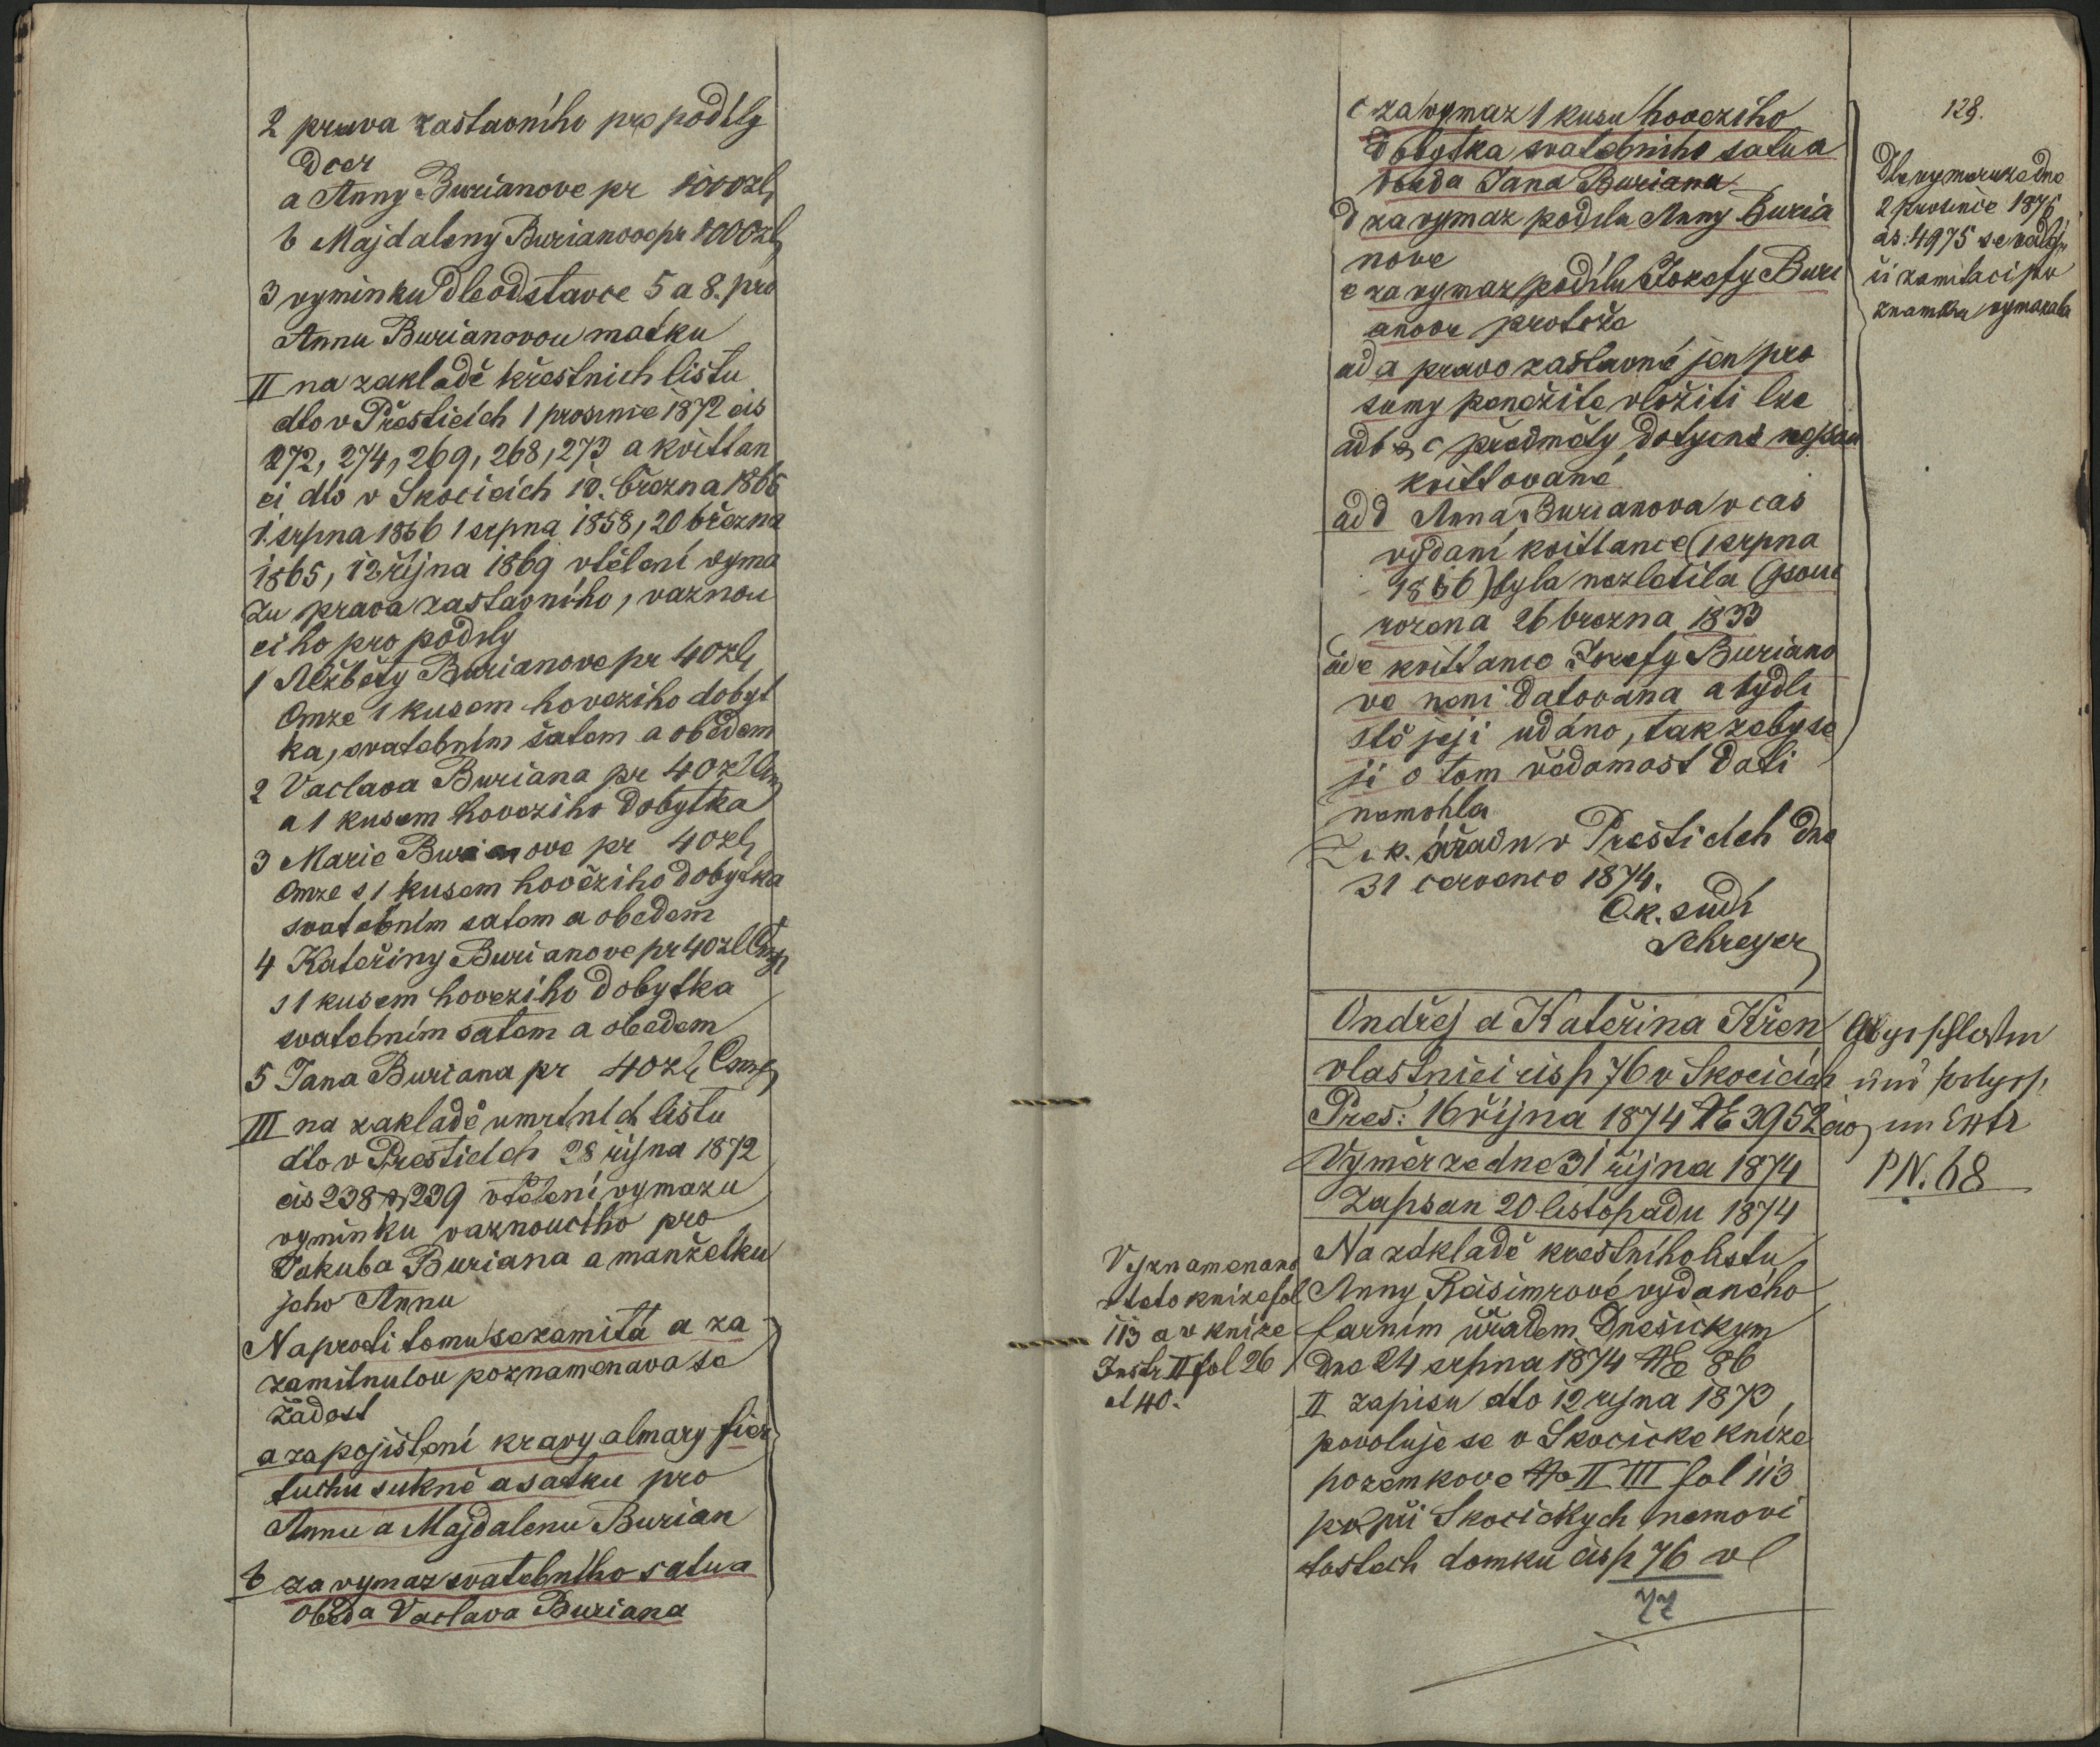 2 prava zastavního pro podíly
dcer
a Anny Burianove pr 1000 zl
b Majdaleny Burianove pr 1000 zl
3 vyminku dle odstavce 5 a 8. pro
Annu Burianovou matku
II na zakladě křestnich listu
dto v Přesticích 1 prosince 1872 čis
272, 274, 269, 268, 273 a kvittan
ci dto v Skocicich 10. března 1866
1. srpna 1856 1 srpna 1858, 20 března
1865, 12 října 1869 vtěleni vyma
zu prava zastavního, vaznou
ciho pro podily
1 Alžběty Burianove pr 40 zl
Cmze 1 kusem hoveziho dobyt
ka, svatebním šatem a obědem
2 Vaclava Buriana pr 40 zl Cm
a 1 kusem hoveziho dobytka
3 Marie Burianove pr 40 zl
Cmze s 1 kusem hověziho dobytka
svatebním satem a obedem
4 Kateřiny Burianove pr 40 zl Cmze
s 1 kusem hoveziho dobytka
svatebním satem a obedem
5 Jana Buriana pr 40 zl Cmze
III na zakladě umrtních listu
dto v Presticich 28 října 1872
čis 238 a 239 vtěleni vymazu
vyminku vaznoucího pro
Jakuba Buriana a manželku
jeho Annu
Naproti tomu se zamitá a za
zamitnutou poznamenava se
žádost
a za pojištení kravy almary fier
tuchu sukně a satku pro
Annu a Majdalenu Burian
b za vymaz svatebního satu a
oběda Vaclava Buriana
128.
c za vymaz 1 kusu hoveziho
dobytka svatebního satu a
obeda Jana Buriana
d za vymaz podilu Anny Buria
nove
e za vymaz podílu Jozefy Buri
anove protože
ad a pravo zastavné jen pro
sumy peněžite vložiti lze
ad b & c předměty dotycné nejsou
kvittované
ad d Anna Burianova v cas
vydaní kvittance (1 srpna
1856) byla nezletila (jsouc
rozena 26 brezna 1833
ad e kvittance Jozefy Buriano
ve neni datovana a bydli
stě jeji udáno, tak zeby se
ji o tom vědomost dati
nemohla
Z c. k. úřadu v Presticich dne
31 cervence 1874.
C. k. sudí
Schreyer
Dle vymeru ze dne
2 prosince 1876
čis: 4975 se
zamitaci po
znamka vymazala
Ondřej a Kateřina Křen
vlastnici čis p 76 v Skocicích
Pres: 16 října 1874 № 3952 civ
Vyměr ze dne 31 října 1874
Zapsan 20 listopadu 1874
PN. 68
Vyznamenano
v teto knize fol
113 a v knize
Instr II fol 26
et 40.
Na základě krestního listu
Anny Reisimrové vydaného
farním úřadem Dnešickym
dne 24 srpna 1874 № 86
II zapisu dto 12 rijna 1873,
povoluje se v Skocicke knize
pozemkove № II III fol 113
při Skocickych nemovi
tostech domku čis p 76 vl
77